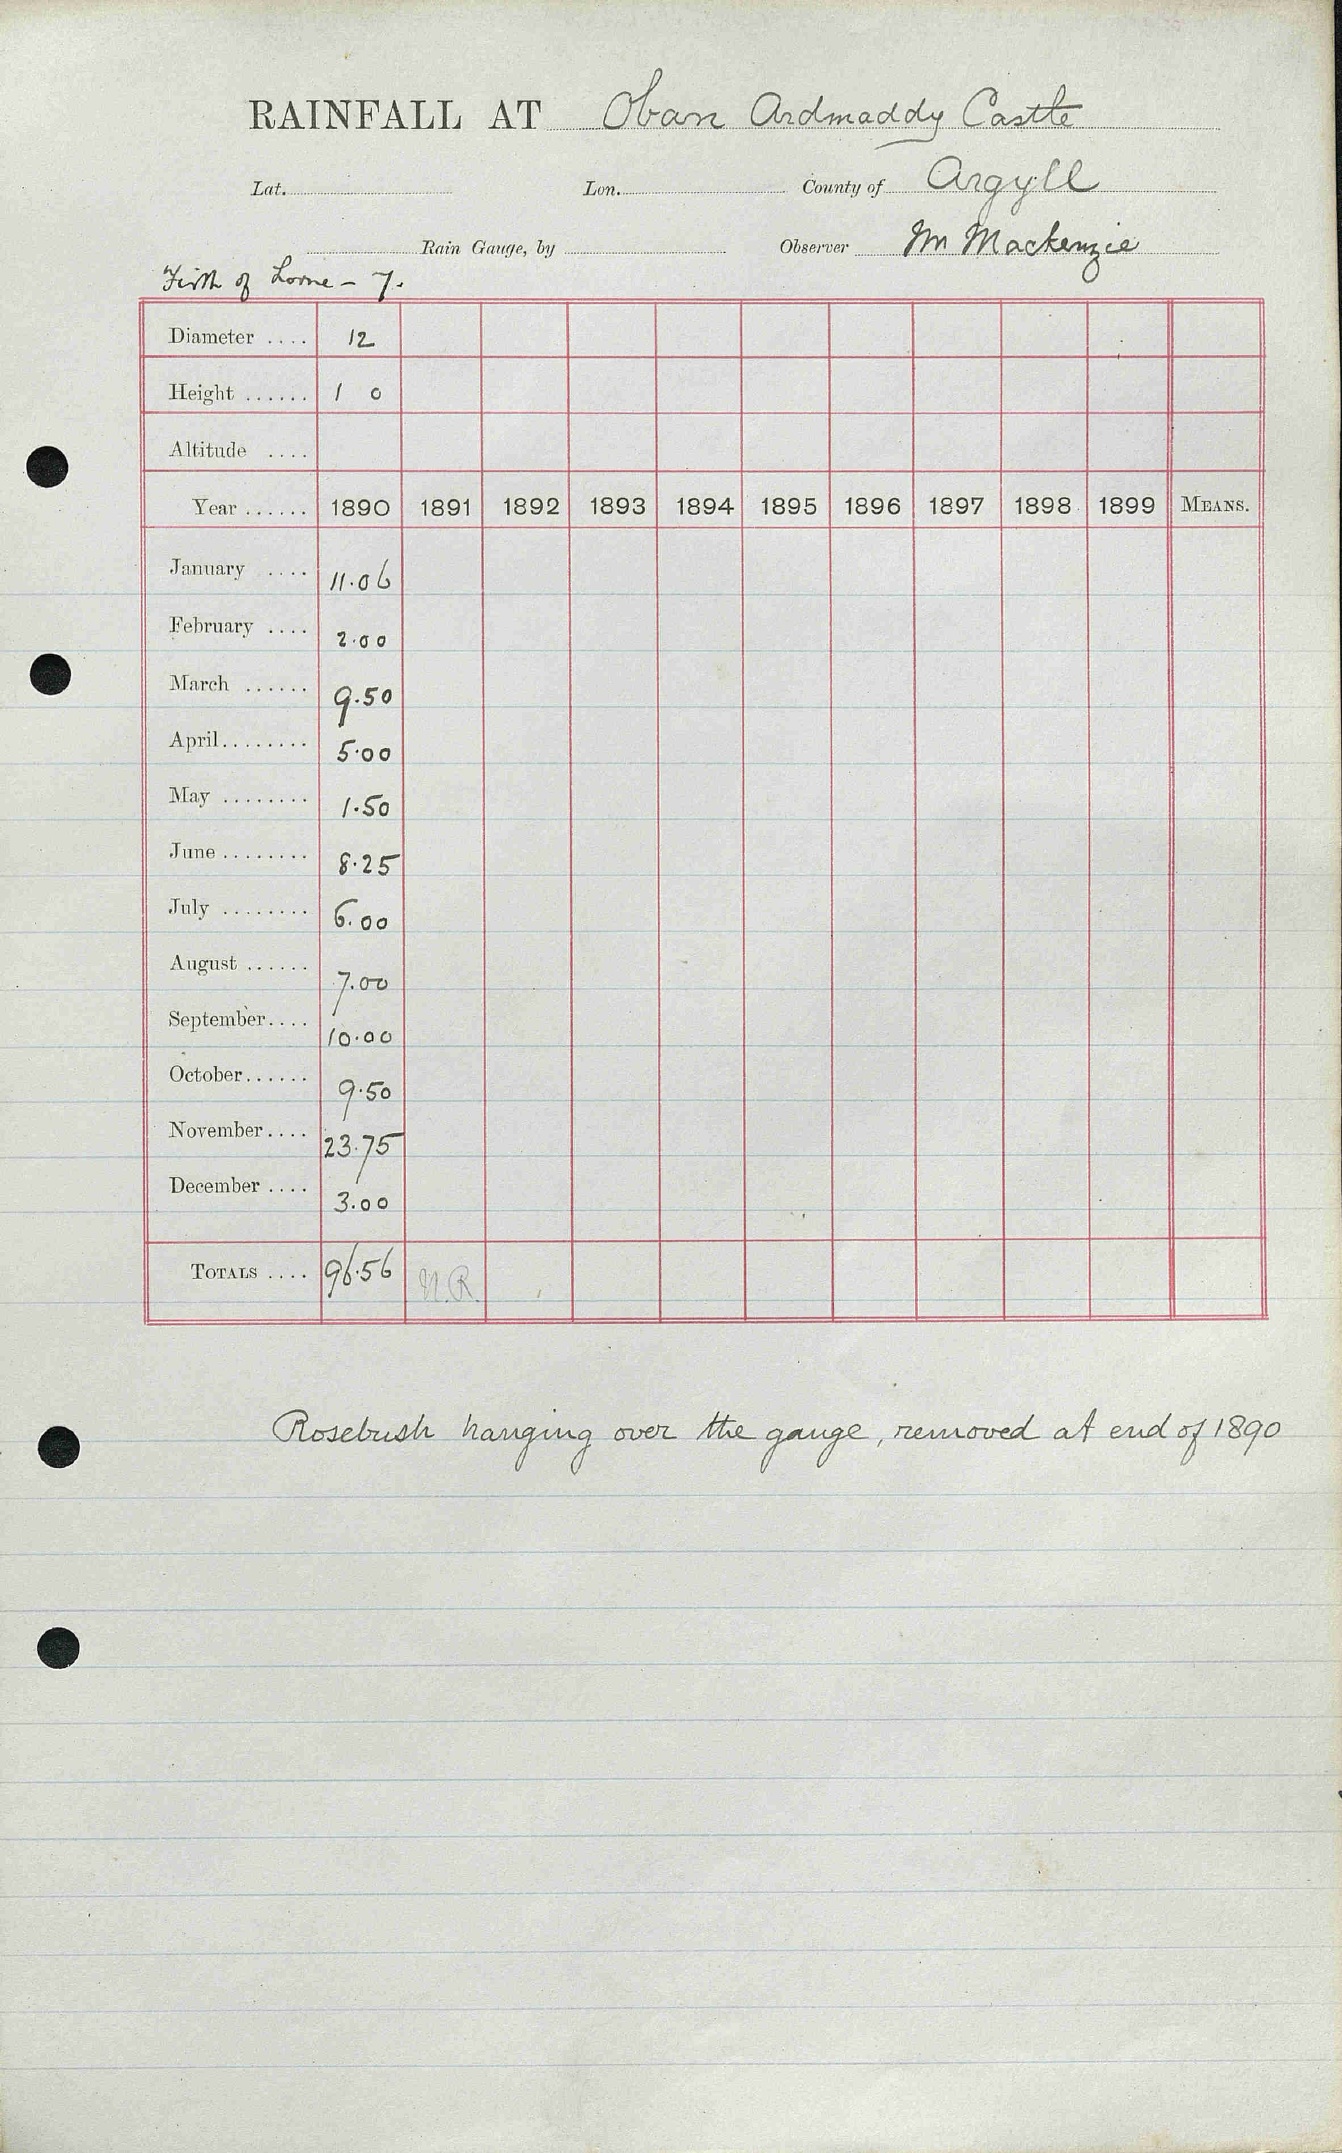 RAINFALL AT Oban Ardmaddy Castle
Lat. Lon. County of Argyll
Rain Gauge, by Observer Mr Mackenzie
Firth of Lorne - 7.
Diameter .... 12
Height ...... 1 0
Altitude ....
Year ...... 1890 1891 1892 1893 1894 1895 1896 1897 1898 1899 MEANS.
January .... 11.06
February .... 2.00
March ...... 9.50
April ........ 5.00
May ........ 1.50
June ........ 8.25
July ........ 6.00
August ...... 7.00
September .... 10.00
October ...... 9.50
November .... 23.75
December .... 3.00
TOTALS .... 96.56 N.R.
Rosebush hanging over the gauge, removed at end of 1890